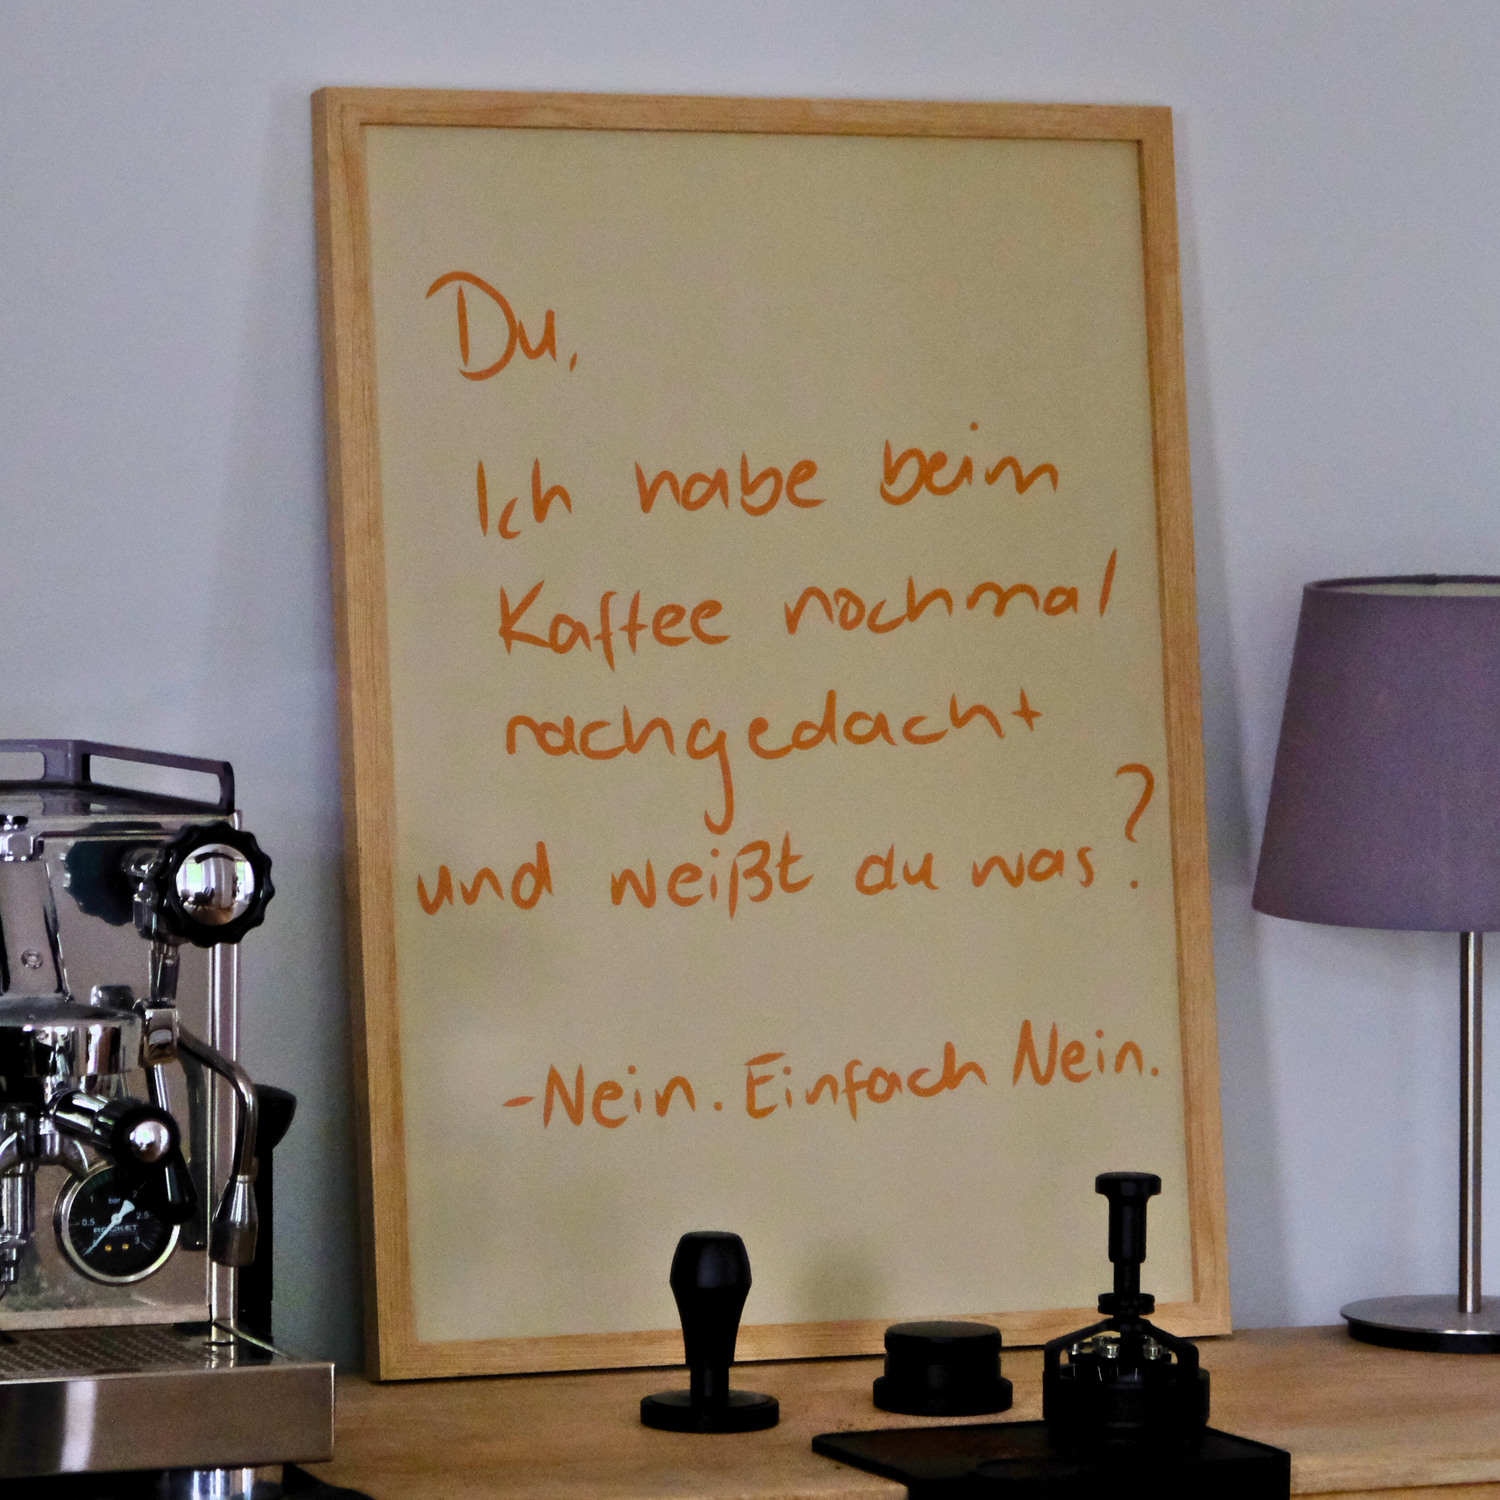 Du,
Ich habe beim
Kaffee nochmal
nachgedacht
und weißt du was?
-Nein. Einfach Nein.
bar
0.5 1 2 2.5
ROCKET
3